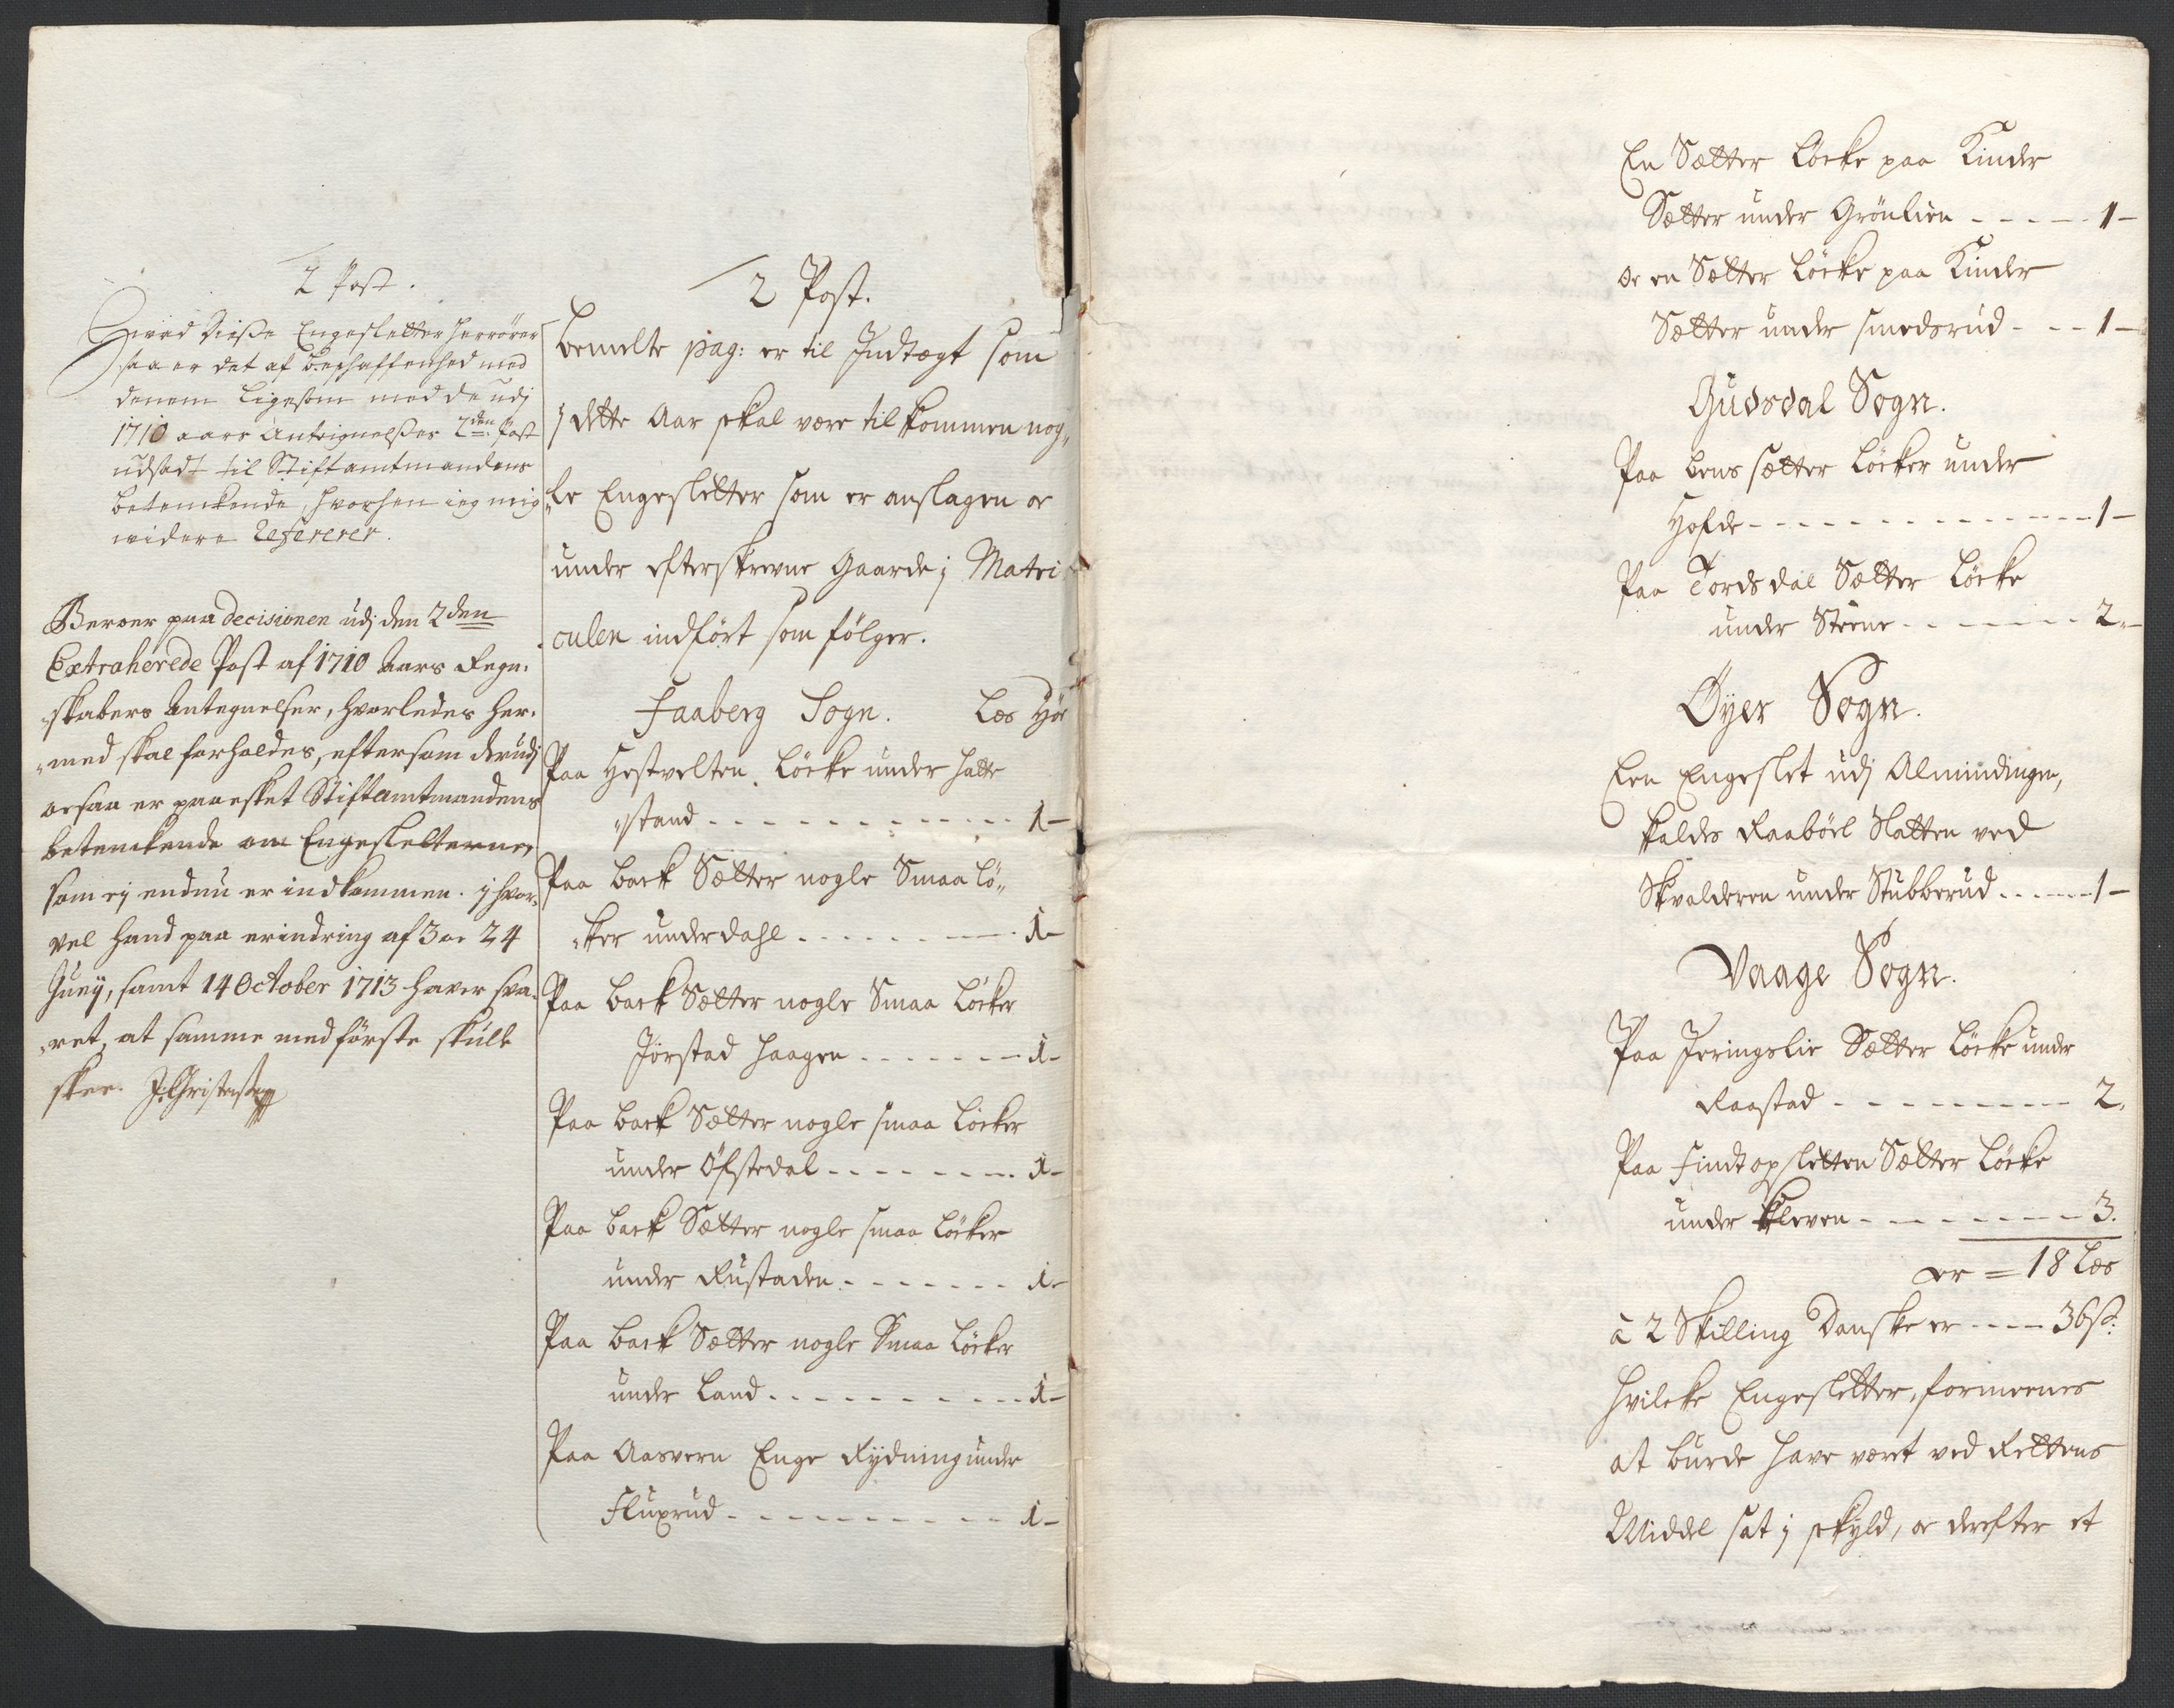 2 Post.
Hvad disse Engesletter herrører
saa er det af beschaffenhed med
denem Ligesom med de udj
1710 aars Anteignelsses 2den Post
udsadt til Stiftamtmandens
betenkende, hvorhen ieg mig
widere Refererer.
Beroer paa decisionen udj den 2den
Extraherede Post af 1710 Aars Regn-
skabers Antegnelser, hvorledes her-
med skal forholdes, eftersom derudj
ocsaa er paaesket Stiftamtmandens
betenkende om Engesletterne,
som ej endnu er indkommen. j hvor-
vel hand paa erindring af 3 oc 24
Junj, samt 14 October 1713 haver sva-
ret, at samme med første skulle
skee. J: Christensen
2 Post.
bemelte pag: er til Indtægt som
j dette Aar skal være tilkommen nog„
„le Engesletter som er anslagen oc
under efterskrevne Gaarde j Matri
culen indført som følger.
Faaberg Sogn. Læs Hør
Paa Hestvelten Löcke under Hatte
„stand - - - - - - 1-
Paa back Sætter nogle Smaa Lö„
„cker under Dahl - - - - - 1-
Paa back Sætter nogle Smaa Löcker
Jörstad Haagen - - - - - 1-
Paa back Sætter nogle smaa Löcker
under Öfstedal - - - - - 1-
Paa back Sætter nogle smaa Löcker
under Rustaden - - - - - 1-
Paa back Sætter nogle Smaa Löcker
under Land - - - - - 1-
Paa Aasvern Enge Rydning under
Fluxrud - - - - - 1-
En Sætter Löcke paa Kinder
Sætter under Grönlien - - - - 1-
oc en Sætter Löcke paa Kinder
Sætter under smedsrud - - - 1-
Gudsdal Sogn.
Paa bens sætter Löcker under
Hofde - - - - - - 1-
Paa Tordsdal Sætter Löcke
under Steene - - - - - 2-
Öyer Sogn.
Een Engeslet udj Almindingen,
kaldes Raaböel Slatten ved
Skvalderen under Stubberud - - - - 1-
Vaage Sogn.
Paa Jeringslie Sætter Löcke under
Raastad - - - - - 2.
Paa Findtopsletten Sætter Löcke
under Kleven - - - - - 3.
er = 18 Læs
à 2 Skilling Danske er - - - - 36 s:
hvilcke Engesletter, formeenes
at burde have veret ved Rettens
Middel sat j skyld, oc derefter et